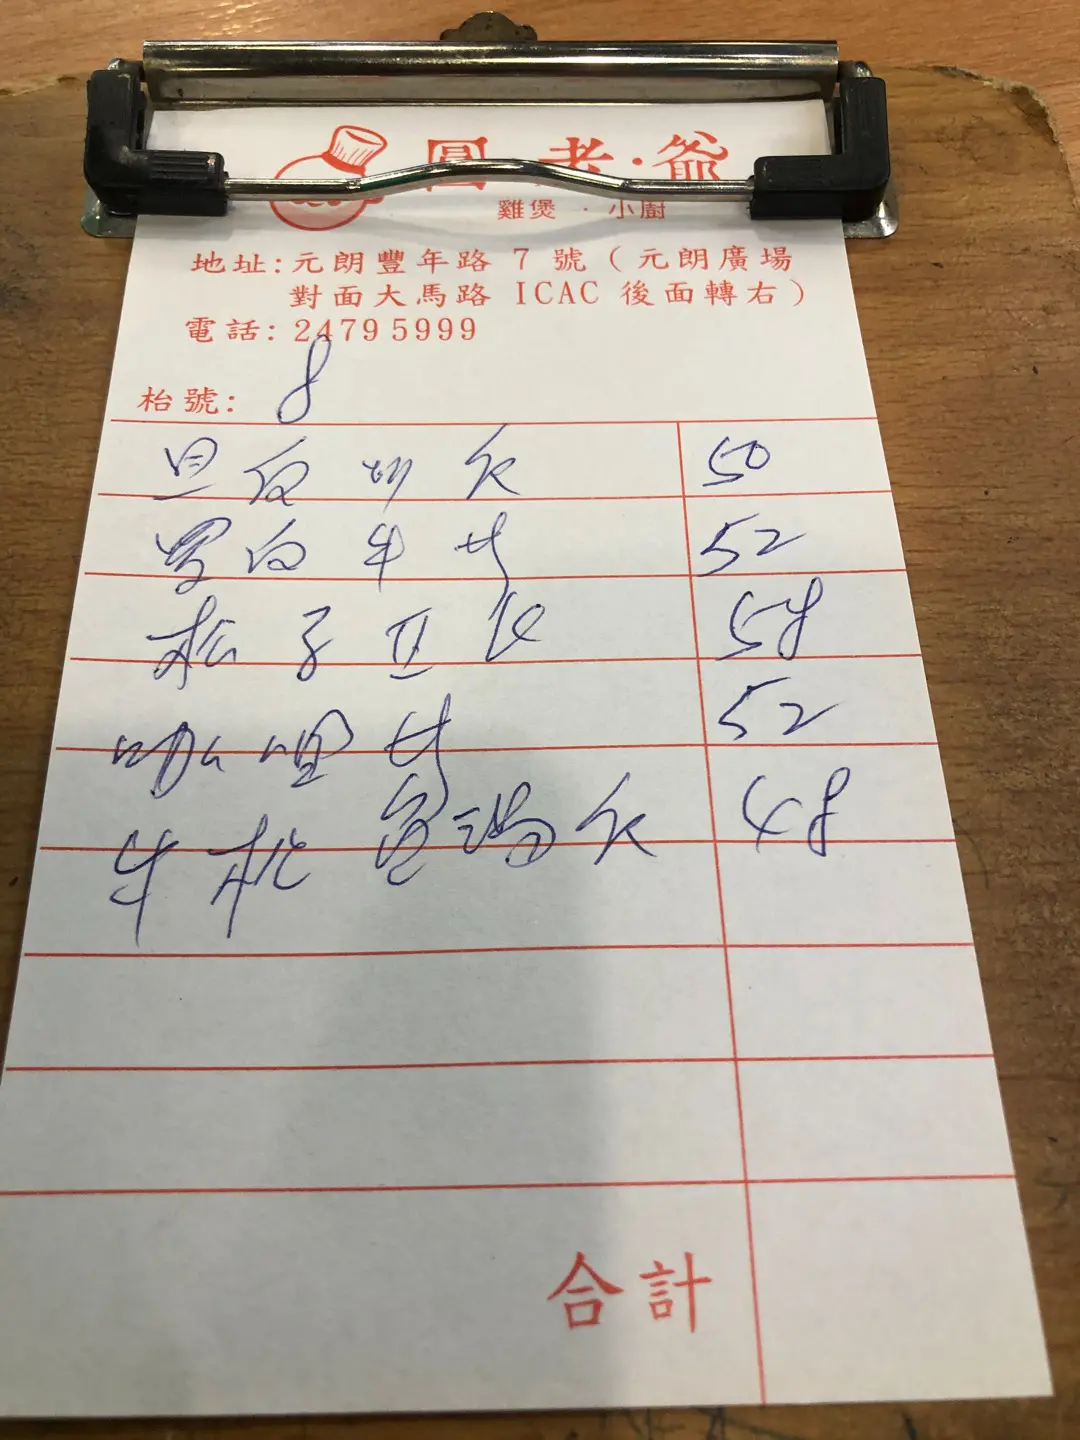 圓老爺
雞煲·小廚
地址:元朗豐年路 7 號（元朗廣場
對面大馬路 ICAC 後面轉右）
電話: 2479 5999
枱號: 8
旦 反 欠 50
白 牛 52
松 子 58
咖 喱 52
牛 欠 48
合計